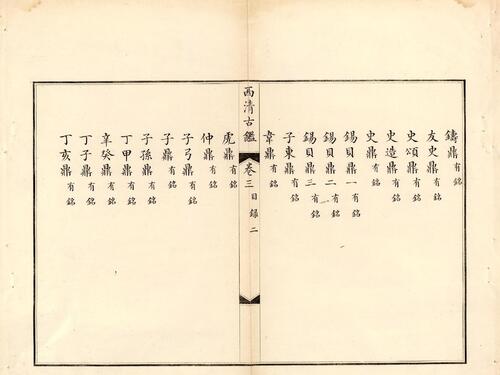 鑄鼎有銘
友史鼎有銘
史頌鼎有銘
史造鼎有銘
史鼎有銘
錫貝鼎一有銘
錫貝鼎二有銘
錫貝鼎三有銘
子東鼎有銘
韋鼎有銘
西清古鑑 卷三 目錄 二
虎鼎有銘
仲鼎有銘
子弓鼎有銘
子鼎有銘
子孫鼎有銘
丁甲鼎有銘
辛癸鼎有銘
丁子鼎有銘
丁亥鼎有銘